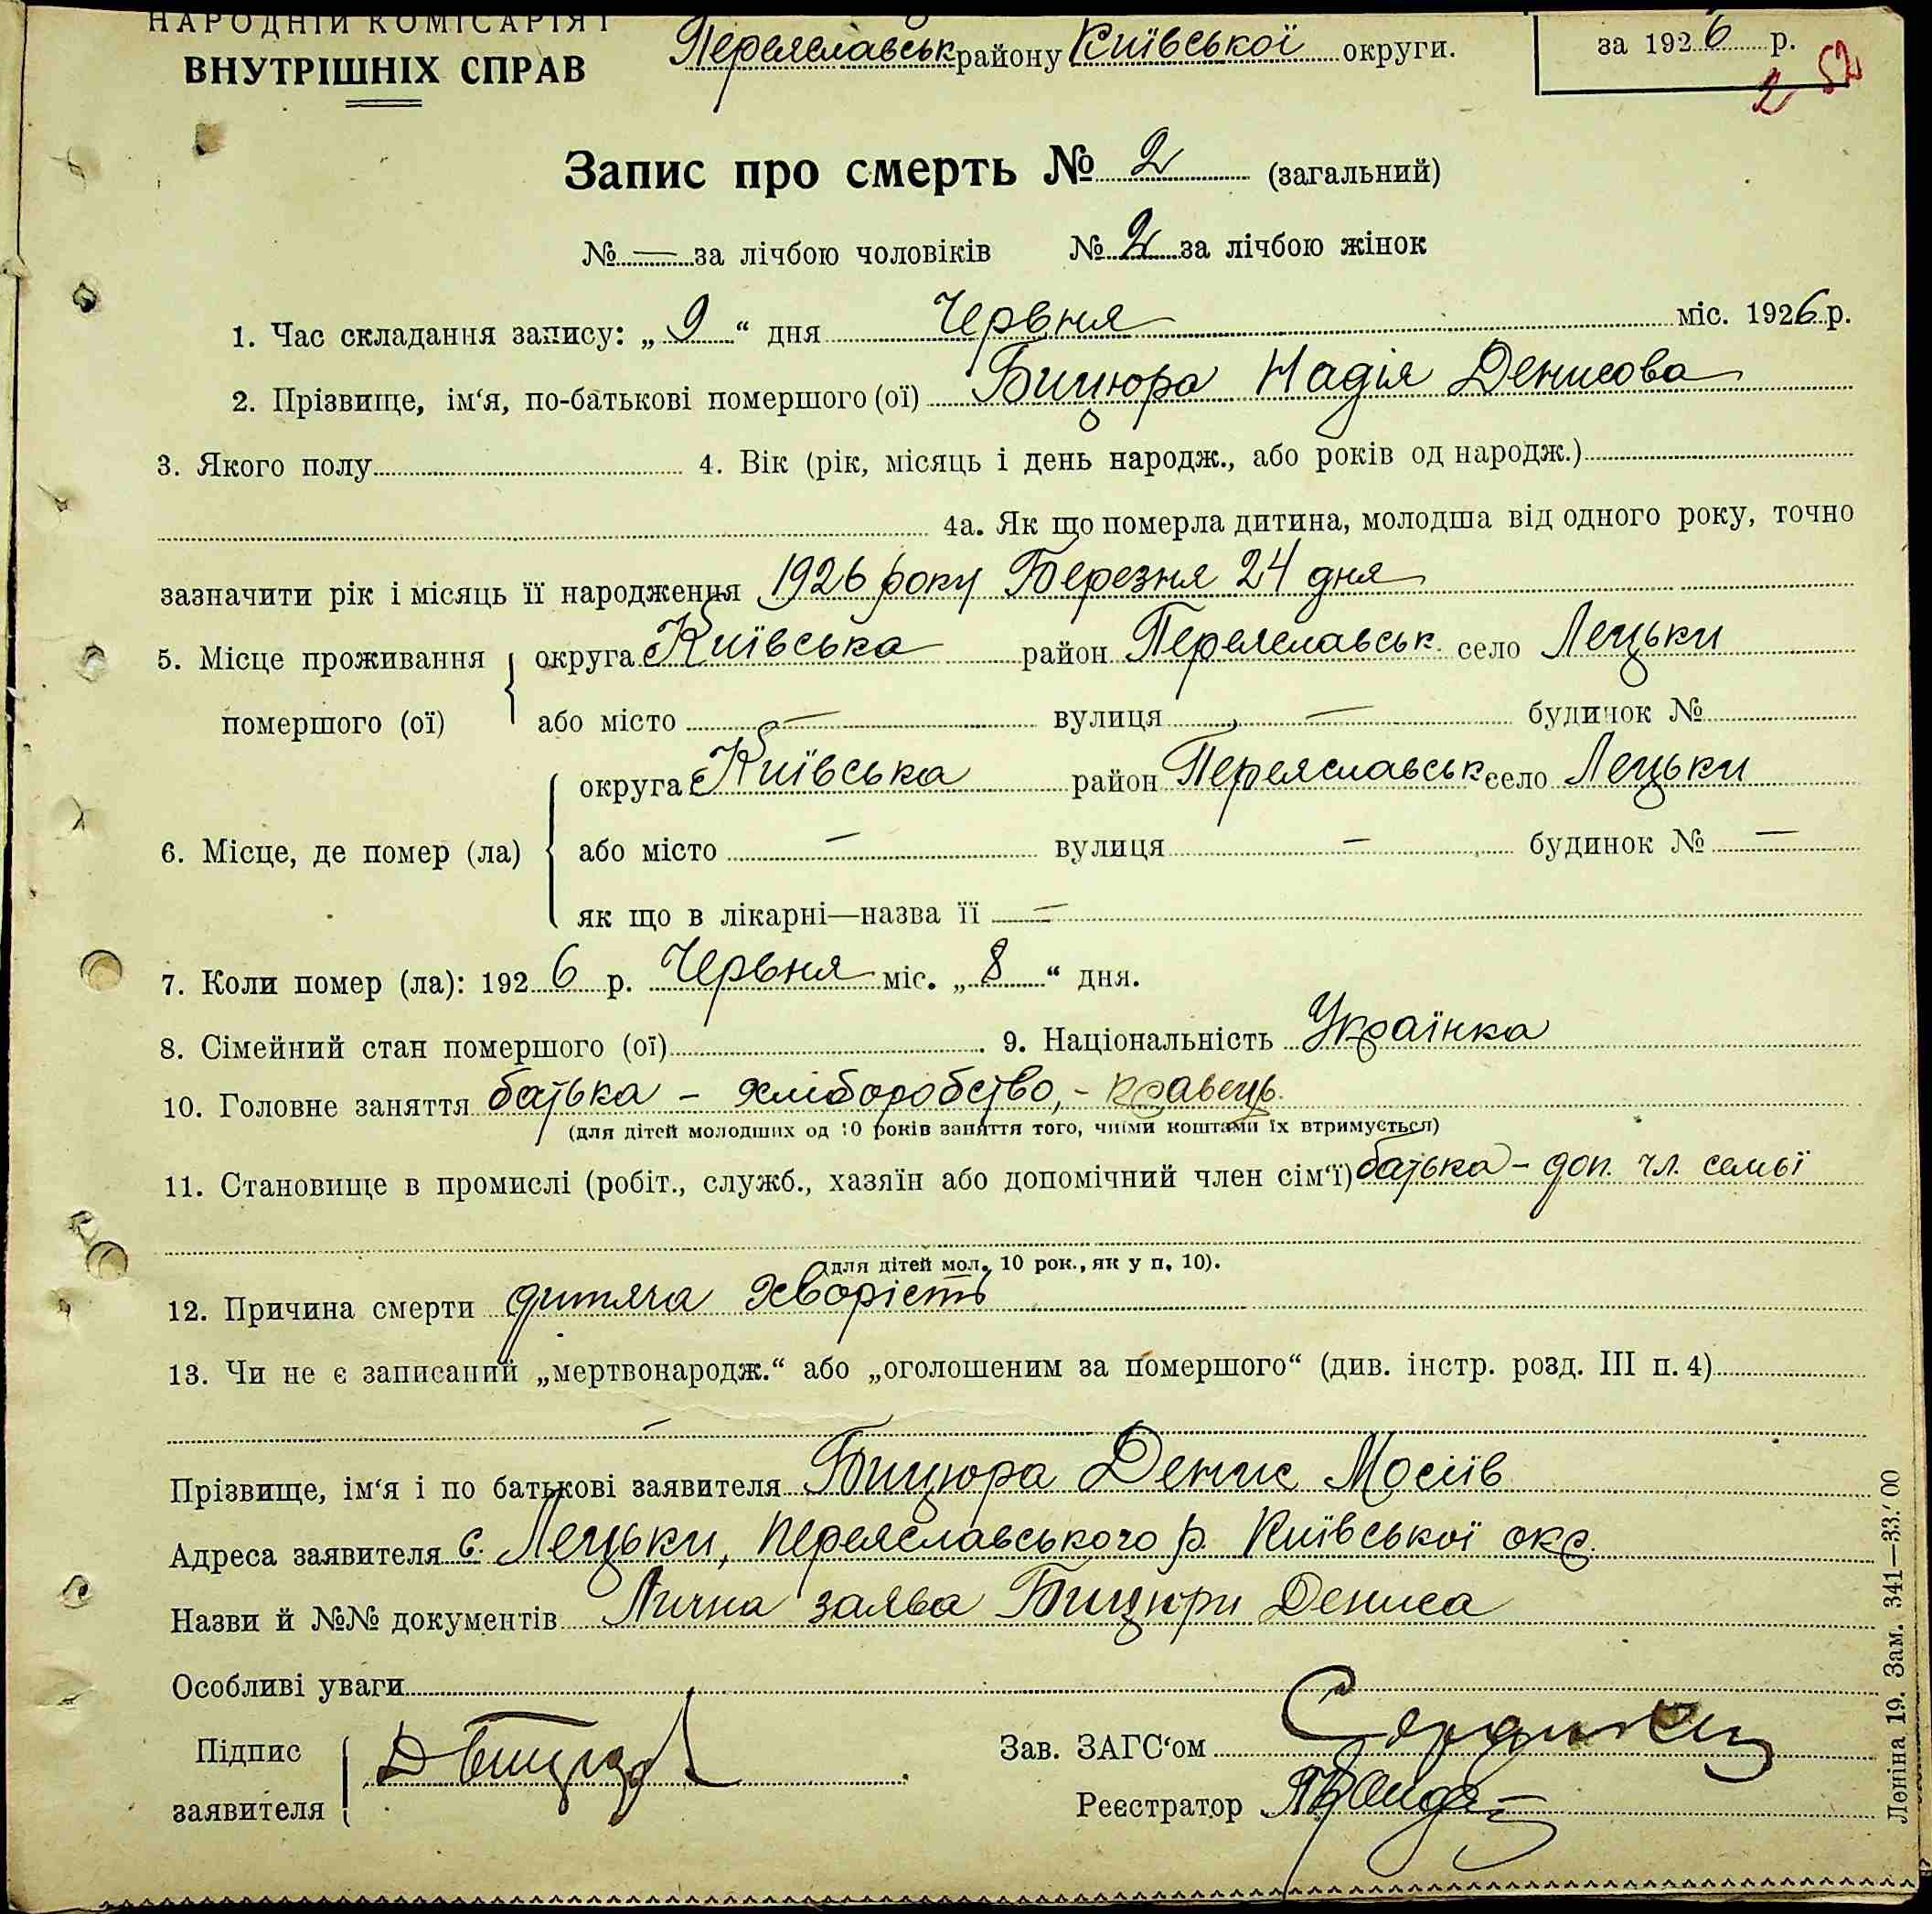 НАРОДНІЙ КОМІСАРІЯТ
ВНУТРІШНІХ СПРАВ
Переяславськ району Київської округи.
за 1926 р.
2 52
Запис про смерть № 2 (загальний)
№ — за лічбою чоловіків № 2 за лічбою жінок
1. Час складання запису: „9“ дня Червня міс. 1926 р.
2. Прізвище, ім‘я, по-батькові помершого (ої) Бицюра Надія Денисова
3. Якого полу 4. Вік (рік, місяць і день народж., або років од народж.)
4а. Як що померла дитина, молодша від одного року, точно
зазначити рік і місяць її народження 1926 року Березня 24 дня
5. Місце проживання округа Київська район Переяславськ село Лецьки
помершого (ої) або місто — вулиця — будинок №
округа Київська район Переяславськ село Лецьки
6. Місце, де помер (ла) або місто — вулиця — будинок № —
як що в лікарні—назва її —
7. Коли помер (ла): 1926 р. Червня міс. „8“ дня.
8. Сімейний стан помершого (ої) 9. Національність Українка
10. Головне заняття батька – хліборобство, - кравець.
(для дітей молодших од 10 років заняття того, чиїми коштами їх втримується)
11. Становище в промислі (робіт., служб., хазяїн або допомічний член сім‘ї) батька – доп. чл. семьї
(для дітей мол. 10 рок., як у п. 10).
12. Причина смерти дитяча хворість
13. Чи не є записаний „мертвонародж.“ або „оголошеним за помершого“ (див. інстр. розд. III п. 4)
—
Прізвище, ім‘я і по батькові заявителя Бицюра Денис Мосіїв
Адреса заявителя с. Лецьки, Переяславського р. Київської окр.
Назви й №№ документів Лична заява Бицюри Дениса
Особливі уваги
Підпис
заявителя
Зав. ЗАГС‘ом
Реєстратор
Леніна 19. Зам. 341—33.′00